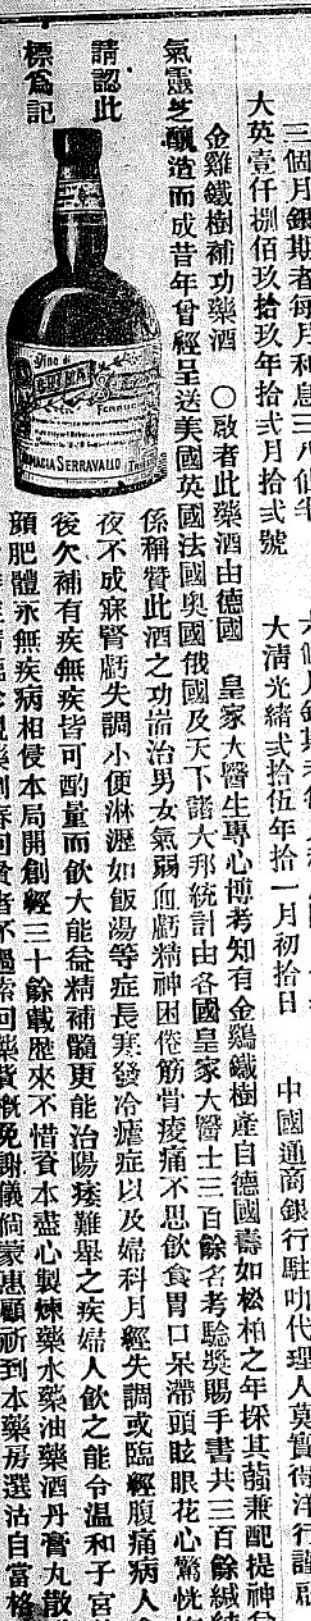 三個月銀期者每月利息三八仙半
大英壹仟捌佰玖拾玖年拾弍月拾弍號
大清光緒弍拾伍年拾一月初拾日
中國通商銀行駐叻代理人莫實得洋行謹啟
金雞鐵樹補功藥酒 〇啟者此藥酒由德國 皇家大醫生專心博考知有金鷄鐵樹產自德國壽如松柏之年採其蘤兼配提神
氣靈芝釀造而成昔年曾經呈送美國英國法國奧國俄國及天下諸大邦統計由各國皇家大醫士三百餘名考驗獎賜手書共三百餘緘
係稱贊此酒之功耑治男女氣弱血虧精神困倦筋骨痠痛不思飲食胃口呆滯頭眩眼花心驚恍
夜不成寐腎虧失調小便淋瀝如飯湯等症長寒發冷瘧症以及婦科月經失調或臨經腹痛病人
後欠補有疾無疾皆可酌量而飲大能益精補髓更能治陽痿難舉之疾婦人飲之能令温和子宮
顏肥體永無疾病相侵本局開創經三十餘載歷來不惜資本盡心製煉藥水藥油藥酒丹膏丸散
回貴者不過索回藥費概免謝儀倘蒙惠顧祈到本藥房選沽自當格
請認此
標為記
Vino di
CHINA
Serravallo
FARMACIA SERRAVALLO